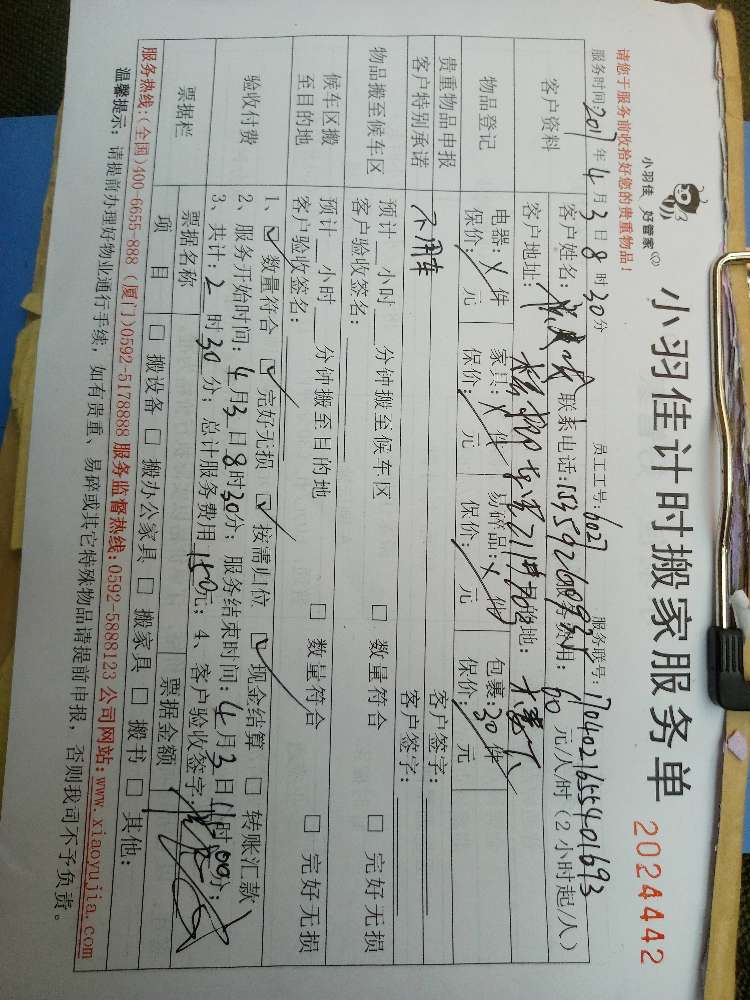 请您于服务前收拾好您的贵重物品！
小羽佳 好管家
小羽佳计时搬家服务单
2024442
服务时间:2017年4月3日8时30分 员工工号:6027 服务联号:704021655401693
客户资料
客户姓名: 联系电话: 服务费用:60元/人/时(2小时起/人)
客户地址: 目的地:
物品登记
电器:X件 家具:X件 易碎品:X件 包裹:30件
保价: 元 保价: 元 保价: 元 保价: 元
贵重物品申报 客户签字:
客户特别承诺 不用车 客户签字:
物品搬至候车区
预计 小时 分钟搬至候车区 □ 数量符合 □ 完好无损
客户验收签名:
候车区搬至目的地
预计 小时 分钟搬至目的地 □ 数量符合 □ 完好无损
客户验收签名:
验收付费
1、☑ 数量符合 ☑ 完好无损 ☑ 按需归位 ☑ 现金结算 □ 转账汇款
2、服务开始时间:4月3日8时30分; 服务结束时间:4月3日11时00分;
3、共计:2时30分; 总计服务费用150元; 4、客户验收签字:
票据栏
票据名称 票据金额
项目 □ 搬设备 □ 搬办公家具 □ 搬家具 □ 搬书 □ 其他:
服务热线:(全国)400-6655-888 (厦门)0592-5178888 服务监督热线:0592-5888123 公司网站:www.xiaoyujia.com
温馨提示: 请提前办理好物业通行手续，如有贵重、易碎或其它特殊物品请提前申报，否则我司不予负责。